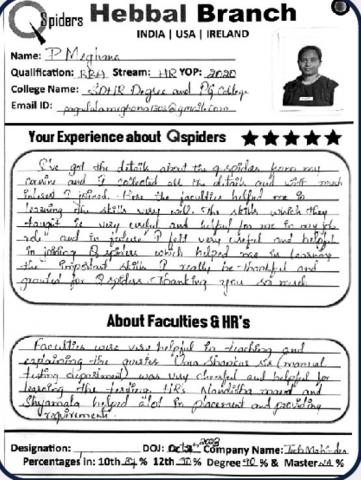 Qspiders Hebbal Branch
INDIA | USA | IRELAND
Name: P Meghana
Qualification: BBA Stream: HR YOP: 2020
College Name: Degree and PG College
Email ID:
Your Experience about Qspiders
I've got the details about the qspiders from my
cousins and I collected all the details and with much
interest I joined. Here the faculties helped me in
learning the skills very well. The skills which they
taught is very useful and helpful for me in my job
role and in future. I felt very useful and helpful
in joining Qspiders which helped me in learning
the important skills I really be thankful and
grateful for Qspiders. Thanking you so much.
About Faculties & HR's
Faculties were very helpful in teaching and
explaining the Uma Shankar sir (manual
testing department) was very cheerful and helpful for
learning the HR's Nanditha mam and
Shyamala helped alot in placement and providing
requirements.
Designation: DOJ: Company Name: Tech Mahindra
Percentages in: 10th % 12th % Degree % & Master NA %